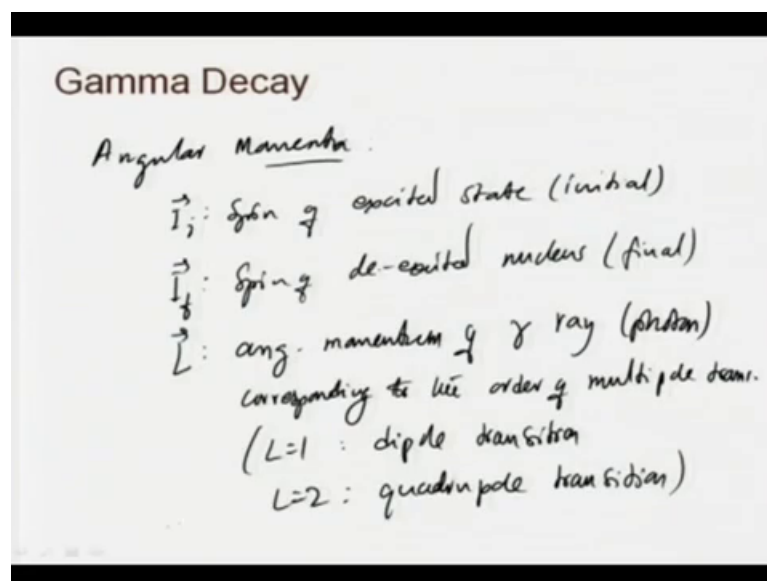 Gamma Decay
Angular Momenta :
I⃗i : Spin of excited state (initial)
I⃗f : Spin of de-excited nucleus (final)
L⃗ : ang. momentum of γ ray (photon)
corresponding to the order of multipole trans.
(L=1 : dipole transition
L=2 : quadrupole transition)